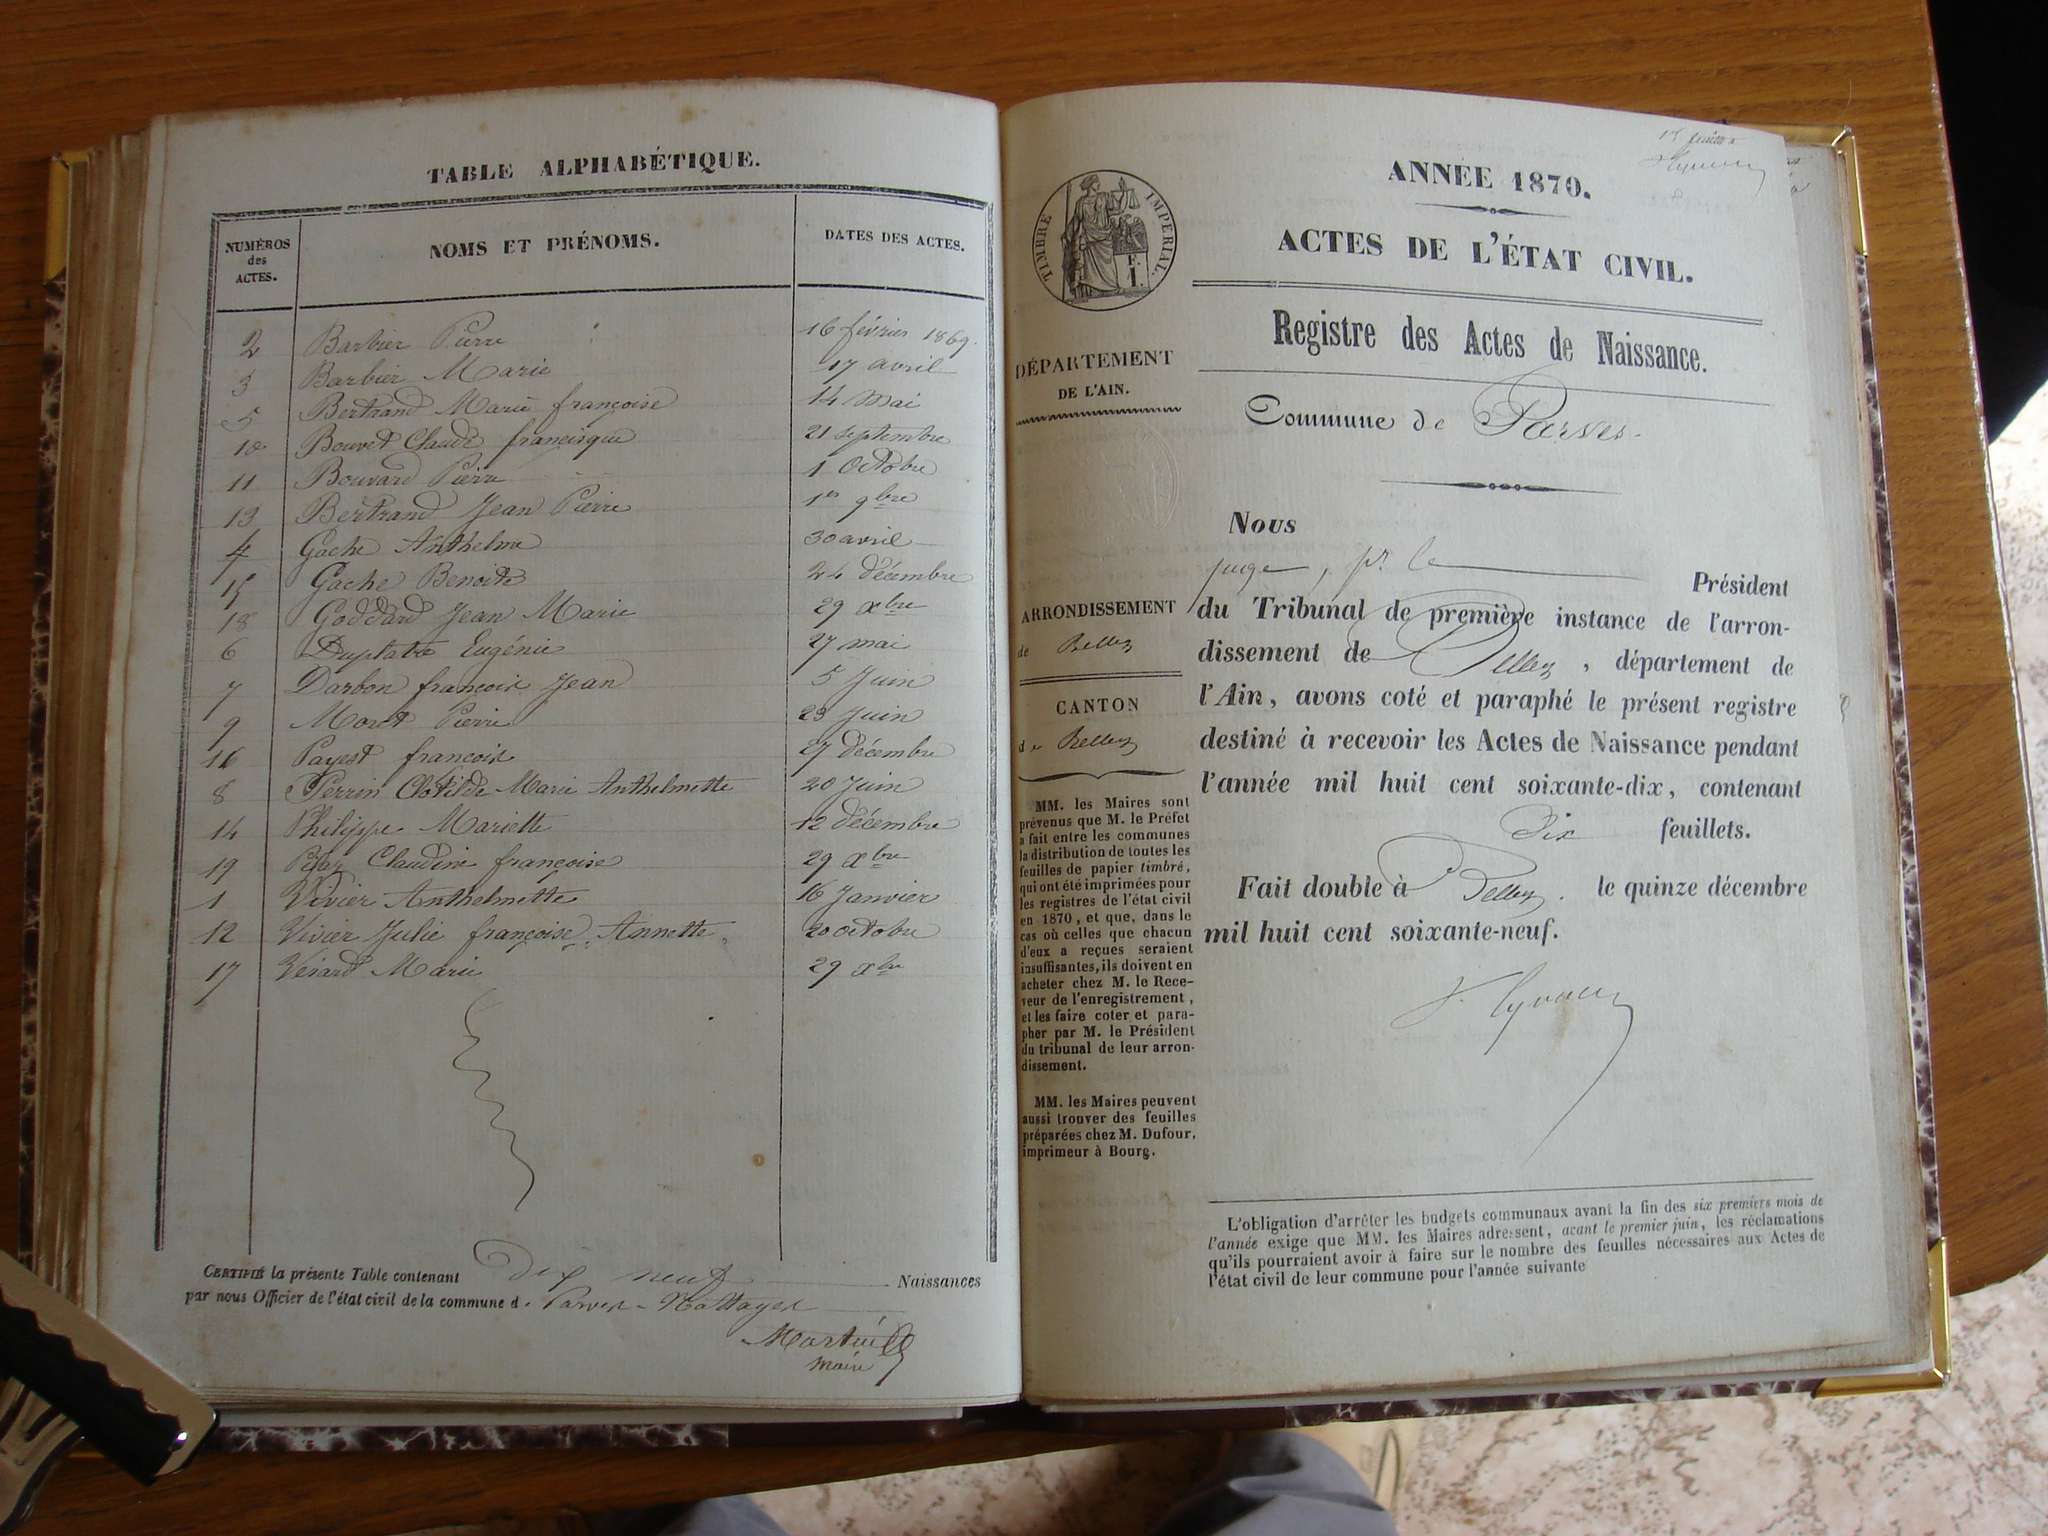 TABLE ALPHABÉTIQUE.
NUMÉROS des ACTES. NOMS ET PRÉNOMS. DATES DES ACTES.
2 Barbier Pierre 16 février 1869.
3 Barbier Marie 17 avril
5 Bertrand Marie françoise 14 Mai
10 Bouvet Claude francisque 21 septembre
11 Bouvard Pierre 1 Octobre
13 Bertrand Jean Pierre 1er 9bre
4 Gache Anthelme 30 avril
15 Gache Benoite 24 décembre
18 Goddard Jean Marie 29 xbre
6 Eugénie 27 mai
7 Darbon françois Jean 5 Juin
9 Mont Pierre 23 Juin
16 Payest françois 27 décembre
8 Perrin Clotilde Marie Anthelmette 20 Juin
14 Philippe Mariette 12 décembre
19 Claudine françoise 29 xbre
1 Vivier Anthelmette 16 Janvier
12 Vivier Julie françoise Annette 20 octobre
17 Marie 29 xbre
CERTIFIÉ la présente Table contenant Dix neuf Naissances
par nous Officier de l'état civil de la commune de Parves - Nattages
Maire
ANNÉE 1870.
ACTES DE L'ÉTAT CIVIL.
TIMBRE IMPÉRIAL
Registre des Actes de Naissance.
DÉPARTEMENT
DE L'AIN.
Commune de Parves.
Nous
juge, pr le Président
du Tribunal de première instance de l'arron-
dissement de Belley, département de
l'Ain, avons coté et paraphé le présent registre
destiné à recevoir les Actes de Naissance pendant
l'année mil huit cent soixante-dix, contenant
Dix feuillets.
Fait double à Belley. le quinze décembre
mil huit cent soixante-neuf.
ARRONDISSEMENT
de Belley
CANTON
de Belley
MM. les Maires sont
prévenus que M. le Préfet
a fait entre les communes
la distribution de toutes les
feuilles de papier timbré,
qui ont été imprimées pour
les registres de l'état civil
en 1870, et que, dans le
cas où celles que chacun
d'eux a reçues seraient
insuffisantes, ils doivent en
acheter chez M. le Rece-
veur de l'enregistrement,
et les faire coter et para-
pher par M. le Président
du tribunal de leur arron-
dissement.
MM. les Maires peuvent
aussi trouver des feuilles
préparées chez M. Dufour,
imprimeur à Bourg.
L'obligation d'arrêter les budgets communaux avant la fin des six premiers mois de
l'année exige que MM. les Maires adressent, avant le premier juin, les réclamations
qu'ils pourraient avoir à faire sur le nombre des feuilles nécessaires aux Actes de
l'état civil de leur commune pour l'année suivante